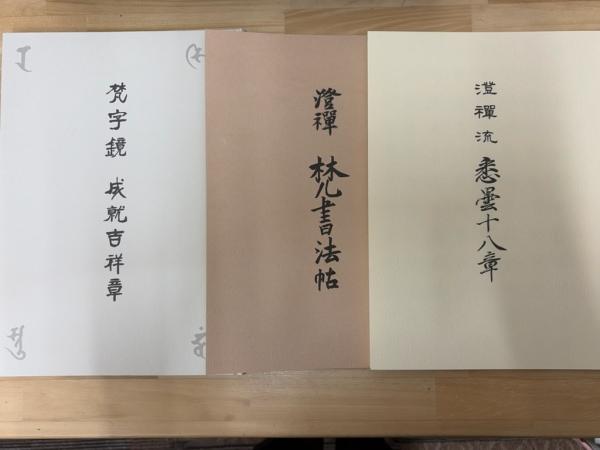 澄禪流 悉曇十八章
澄禪 梵書法帖
梵字鏡 成就吉祥章